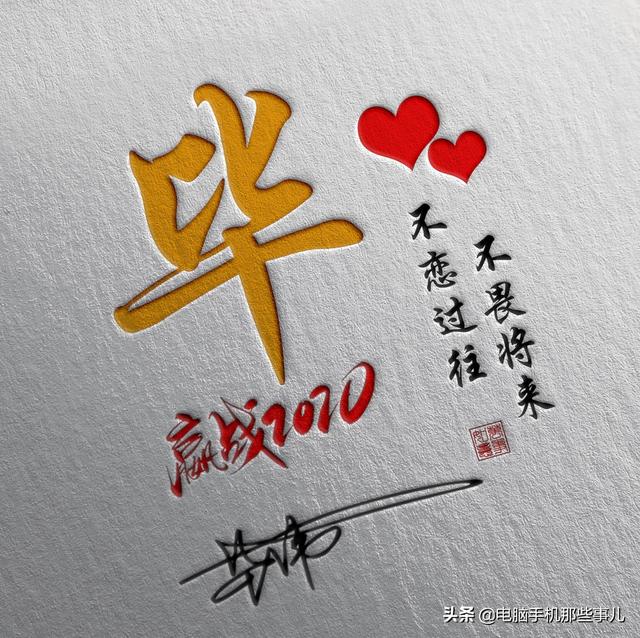 毕
不畏将来
不恋过往
赢战2020
头条 @电脑手机那些事儿